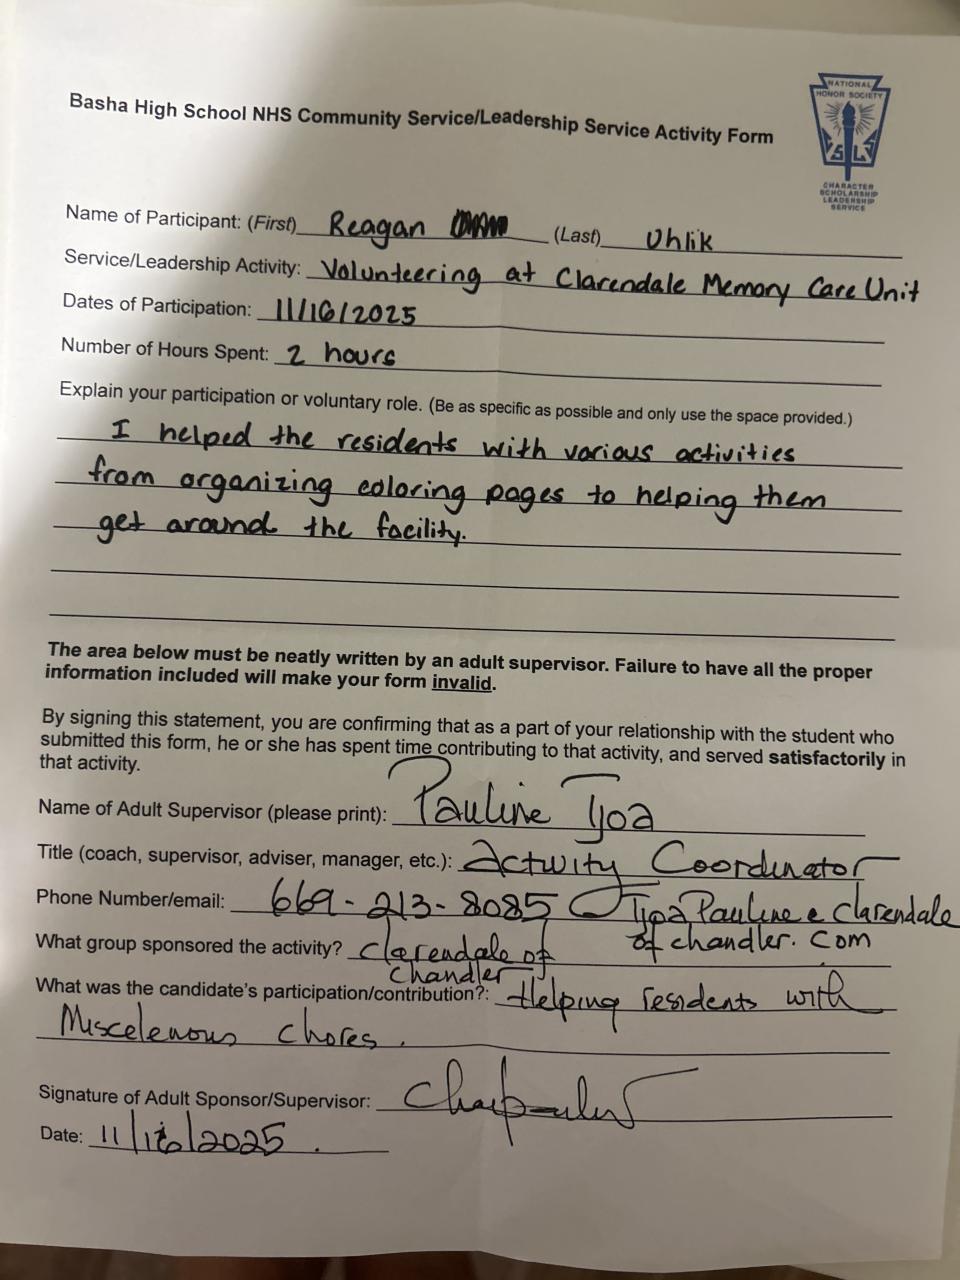 NATIONAL
HONOR SOCIETY
S L S
CHARACTER
SCHOLARSHIP
LEADERSHIP
SERVICE
Basha High School NHS Community Service/Leadership Service Activity Form
Name of Participant: (First) Reagan (Last) Uhlik
Service/Leadership Activity: Volunteering at Clarendale Memory Care Unit
Dates of Participation: 11/16/2025
Number of Hours Spent: 2 hours
Explain your participation or voluntary role. (Be as specific as possible and only use the space provided.)
I helped the residents with various activities
from organizing coloring pages to helping them
get around the facility.
The area below must be neatly written by an adult supervisor. Failure to have all the proper
information included will make your form invalid.
By signing this statement, you are confirming that as a part of your relationship with the student who
submitted this form, he or she has spent time contributing to that activity, and served satisfactorily in
that activity.
Name of Adult Supervisor (please print): Pauline Tjoa
Title (coach, supervisor, adviser, manager, etc.): Activity Coordinator
Phone Number/email: 669-213-8085 Tjoa Pauline @ Clarendale
of chandler.com
What group sponsored the activity? Clarendale of
Chandler
What was the candidate's participation/contribution?: Helping residents with
Miscelenous chores.
Signature of Adult Sponsor/Supervisor:
Date: 11/16/2025.